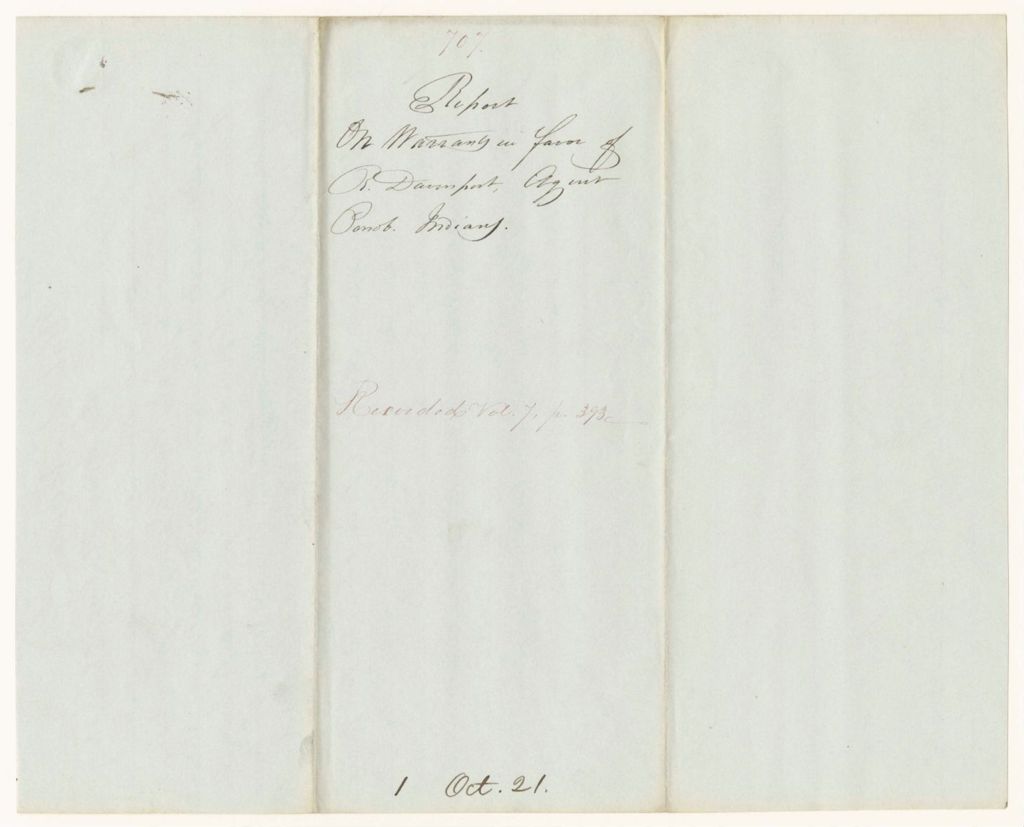 707.
Report
On Warrant in favor of
R. Davenport, Agent
Penob. Indians.
Recorded Vol. 7, p. 393
1 Oct. 21.